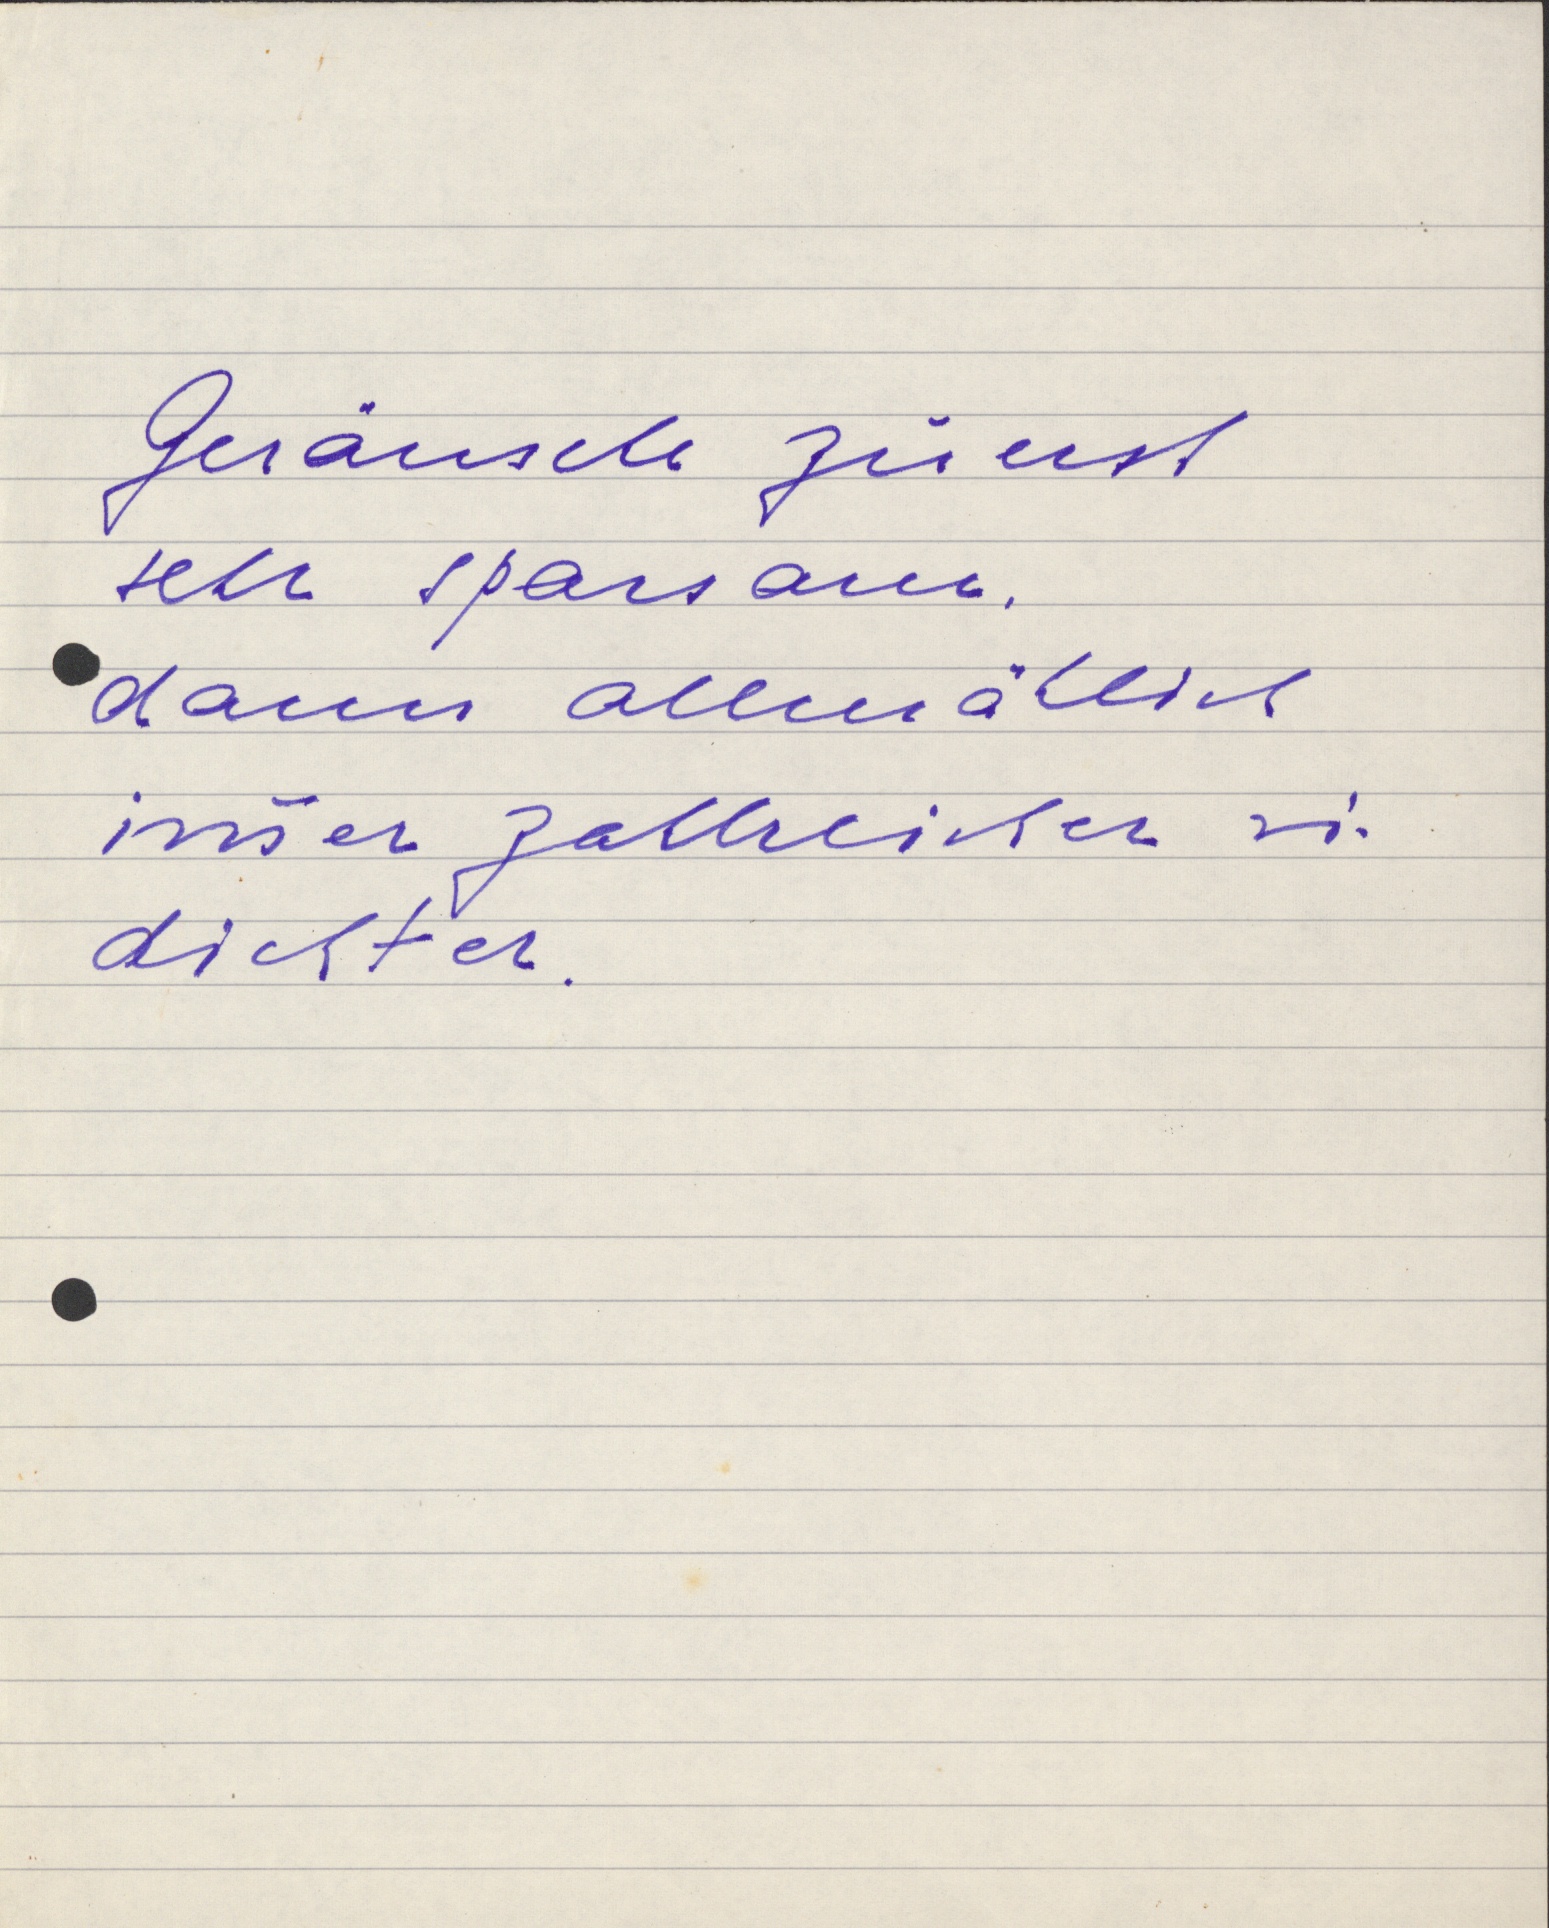 Geräusche zuerst
sehr sparsam.
dann allmählich
im̅er zahlreicher u.
dichter.